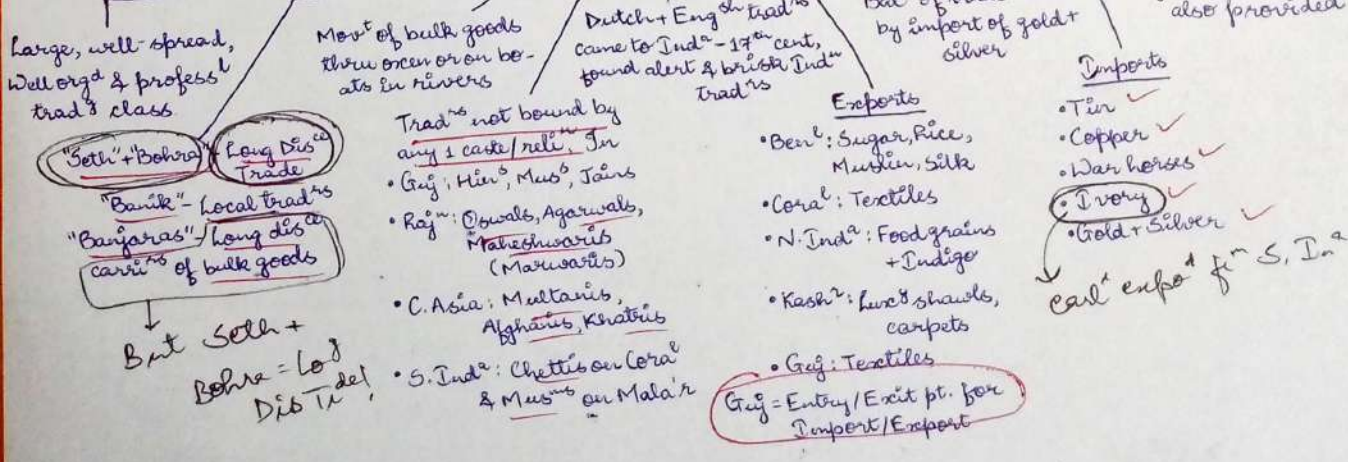 Large, well-spread,
Well orgd & professl
tradg class
"Seth"+"Bohra" - Long Disce
Trade
"Banik" - Local tradrs
"Banjaras" - Long disce
carrirs of bulk goods
But Seth +
Bohra = Log
Dis Trde!
Movt of bulk goods
thru oxen or on bo-
ats in rivers
Tradrs not bound by
any 1 caste/relin, In
• Guj: Hins, Muss, Jains
• Rajn: Oswals, Agarwals,
Maheshwaris
(Marwaris)
• C. Asia: Multanis,
Afghanis, Khatris
• S. Inda: Chettis on Coral
& Musms on Mala'r
Dutch + Engsh tradrs
came to Inda - 17th cent,
found alert & brisk Indn
tradrs
by import of gold +
silver
Exports
• Benl: Sugar, Rice,
Muslin, Silk
• Coral: Textiles
• N. Inda: Foodgrains
+ Indigo
• Kashr: Luxy shawls,
carpets
• Guj: Textiles
Guj = Entry/Exit pt. for
Import/Export
also provided
Imports
• Tin
• Copper
• War horses
• Ivory
• Gold + Silver
earlr expod frm S. Ina